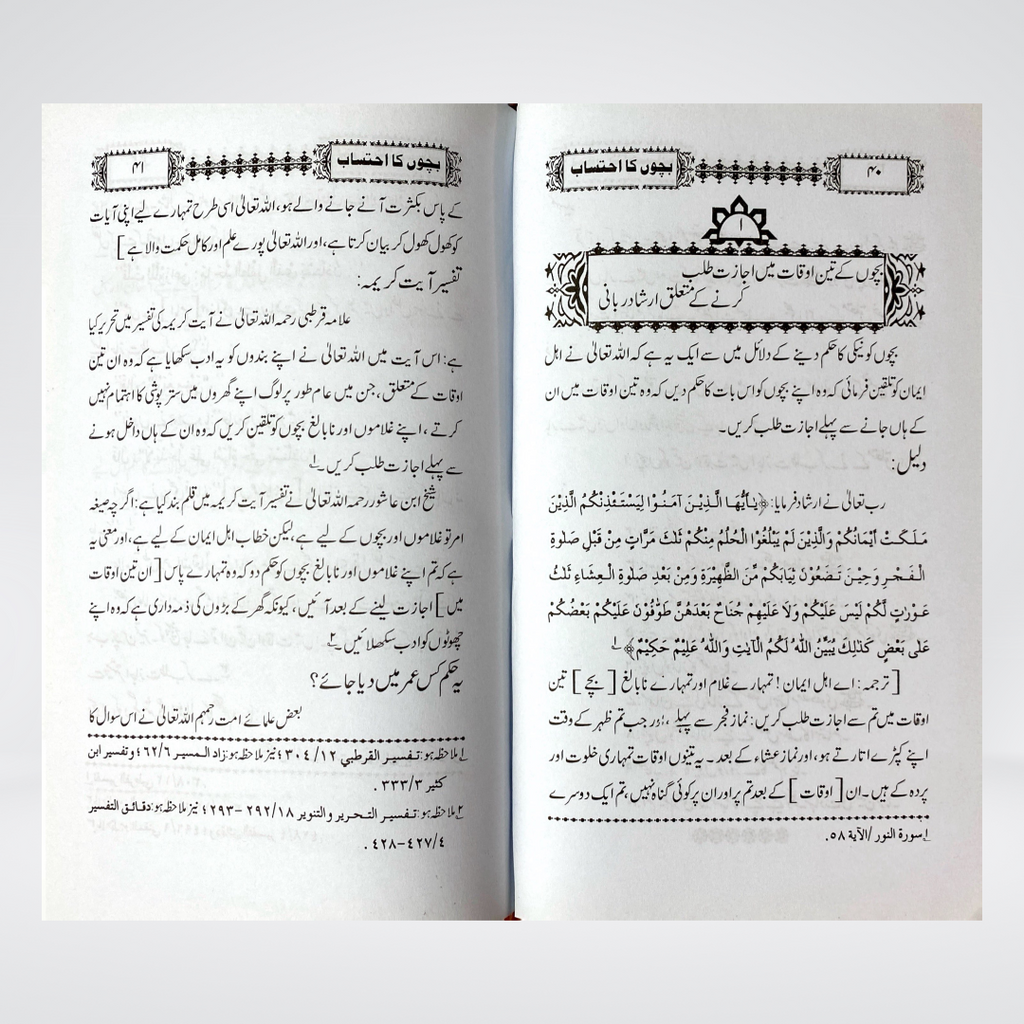 بچوں کا احتساب
۴۰
۱
بچوں کے تین اوقات میں اجازت طلب
کرنے کے متعلق ارشاد ربانی
بچوں کو نیکی کا حکم دینے کے دلائل میں سے ایک یہ ہے کہ اللہ تعالیٰ نے اہل
ایمان کو تلقین فرمائی کہ وہ اپنے بچوں کو اس بات کا حکم دیں کہ وہ تین اوقات میں ان
کے ہاں جانے سے پہلے اجازت طلب کریں۔
دلیل:
رب تعالیٰ نے ارشاد فرمایا: ﴿يٰٓأَيُّهَا الَّذِيْنَ آمَنُوْا لِيَسْتَئْذِنْكُمُ الَّذِيْنَ
مَلَكَتْ أَيْمَانُكُمْ وَالَّذِيْنَ لَمْ يَبْلُغُوْا الْحُلُمَ مِنْكُمْ ثَلٰثَ مَرَّاتٍ مِنْ قَبْلِ صَلٰوةِ
الْفَجْرِ وَحِيْنَ تَضَعُوْنَ ثِيَابَكُمْ مِّنَ الظَّهِيْرَةِ وَمِنْ بَعْدِ صَلٰوةِ الْعِشَاءِ ثَلٰثُ
عَوْرٰتٍ لَّكُمْ لَيْسَ عَلَيْكُمْ وَلَا عَلَيْهِمْ جُنَاحٌ بَعْدَهُنَّ طَوّٰفُوْنَ عَلَيْكُمْ بَعْضُكُمْ
عَلٰى بَعْضٍ كَذٰلِكَ يُبَيِّنُ اللّٰهُ لَكُمُ الْاٰيٰتِ وَاللّٰهُ عَلِيْمٌ حَكِيْمٌ﴾ ۱
[ترجمہ: اے اہل ایمان! تمہارے غلام اور تمہارے نابالغ [بچے] تین
اوقات میں تم سے اجازت طلب کریں: نماز فجر سے پہلے، اور جب تم ظہر کے وقت
اپنے کپڑے اتارتے ہو، اور نماز عشاء کے بعد۔ یہ تینوں اوقات تمہاری خلوت اور
پردہ کے ہیں۔ ان [اوقات] کے بعد تم پر اور ان پر کوئی گناہ نہیں، تم ایک دوسرے
۱ سورة النور / الآية ۵۸.
بچوں کا احتساب
۴۱
کے پاس بکثرت آنے جانے والے ہو، اللہ تعالیٰ اسی طرح تمہارے لیے اپنی آیات
کو کھول کھول کر بیان کرتا ہے، اور اللہ تعالیٰ پورے علم اور کامل حکمت والا ہے]
تفسیر آیت کریمہ:
علامہ قرطبی رحمہ اللہ تعالیٰ نے آیت کریمہ کی تفسیر میں تحریر کیا
ہے: اس آیت میں اللہ تعالیٰ نے اپنے بندوں کو یہ ادب سکھایا ہے کہ وہ ان تین
اوقات کے متعلق، جن میں عام طور پر لوگ اپنے گھروں میں ستر پوشی کا اہتمام نہیں
کرتے، اپنے غلاموں اور نابالغ بچوں کو تلقین کریں کہ وہ ان کے ہاں داخل ہونے
سے پہلے اجازت طلب کریں۔ ۱
شیخ ابن عاشور رحمہ اللہ تعالیٰ نے تفسیر آیت کریمہ میں قلم بند کیا ہے: اگرچہ صیغہ
امر تو غلاموں اور بچوں کے لیے ہے، لیکن خطاب اہل ایمان کے لیے ہے، اور معنی یہ
ہے کہ تم اپنے غلاموں اور نابالغ بچوں کو حکم دو کہ وہ تمہارے پاس [ان تین اوقات
میں] اجازت لینے کے بعد آئیں، کیونکہ گھر کے بڑوں کی ذمہ داری ہے کہ وہ اپنے
چھوٹوں کو ادب سکھلائیں۔ ۲
یہ حکم کس عمر میں دیا جائے؟
بعض علمائے امت رحمہم اللہ تعالیٰ نے اس سوال کا
۱ ملاحظہ ہو: تفسیر القرطبي ۱۲/۳۰۴؛ نیز ملاحظہ ہو: زاد المسیر ۶/۴۶۲ و تفسیر ابن
کثیر ۳/۳۳۳.
۲ ملاحظہ ہو: تفسیر التحریر والتنویر ۱۸/۲۹۲-۲۹۳؛ نیز ملاحظہ ہو: دقائق التفسیر
۴/۴۲۷-۴۲۸.